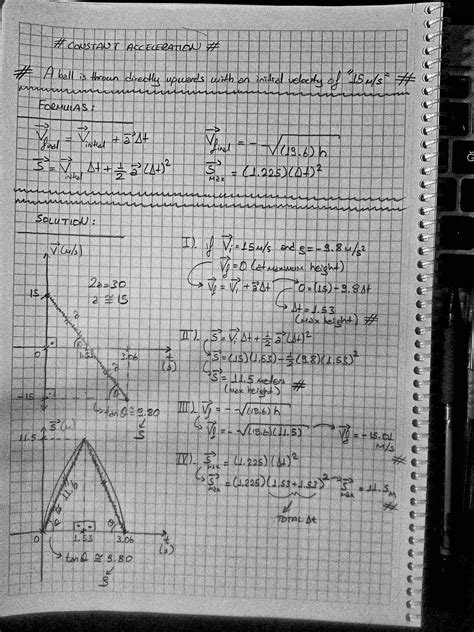 # CONSTANT ACCELERATION #
# A ball is thrown directly upwards with an initial velocity of "15 m/s" #
FORMULAS:
V⃗final = V⃗initial + a⃗Δt
V⃗final = -√(19.6)h
S⃗ = V⃗initial Δt + 1/2 a⃗(Δt)²
S⃗max = (1.225)(Δt)²
SOLUTION:
V⃗(m/s)
2a=30
a≅15
15
0
1.53
3.06
t(s)
θ
-15
tanθ≅9.80
g
S⃗(m)
11.5
≅ 11.6
0
1.53
3.06
t(s)
θ
tanθ≅9.80
g
I). if V⃗i=15m/s and g=-9.8m/s²
V⃗f=0 (at maximum height)
V⃗f=V⃗i+a⃗Δt
0=(15)-9.8Δt
Δt=1.53
(max height) #
II). S⃗=V⃗iΔt+1/2 a⃗(Δt)²
S⃗=(15)(1.53)-1/2(9.8)(1.53)²
S⃗=11.5 meters
(max height) #
III). V⃗f=-√(19.6)h
V⃗f=-√(19.6)(11.5)
V⃗f=-15.01 m/s #
IV). S⃗max=(1.225)(Δt)²
S⃗max=(1.225)(1.53+1.53)²
S⃗max=11.5m #
TOTAL Δt